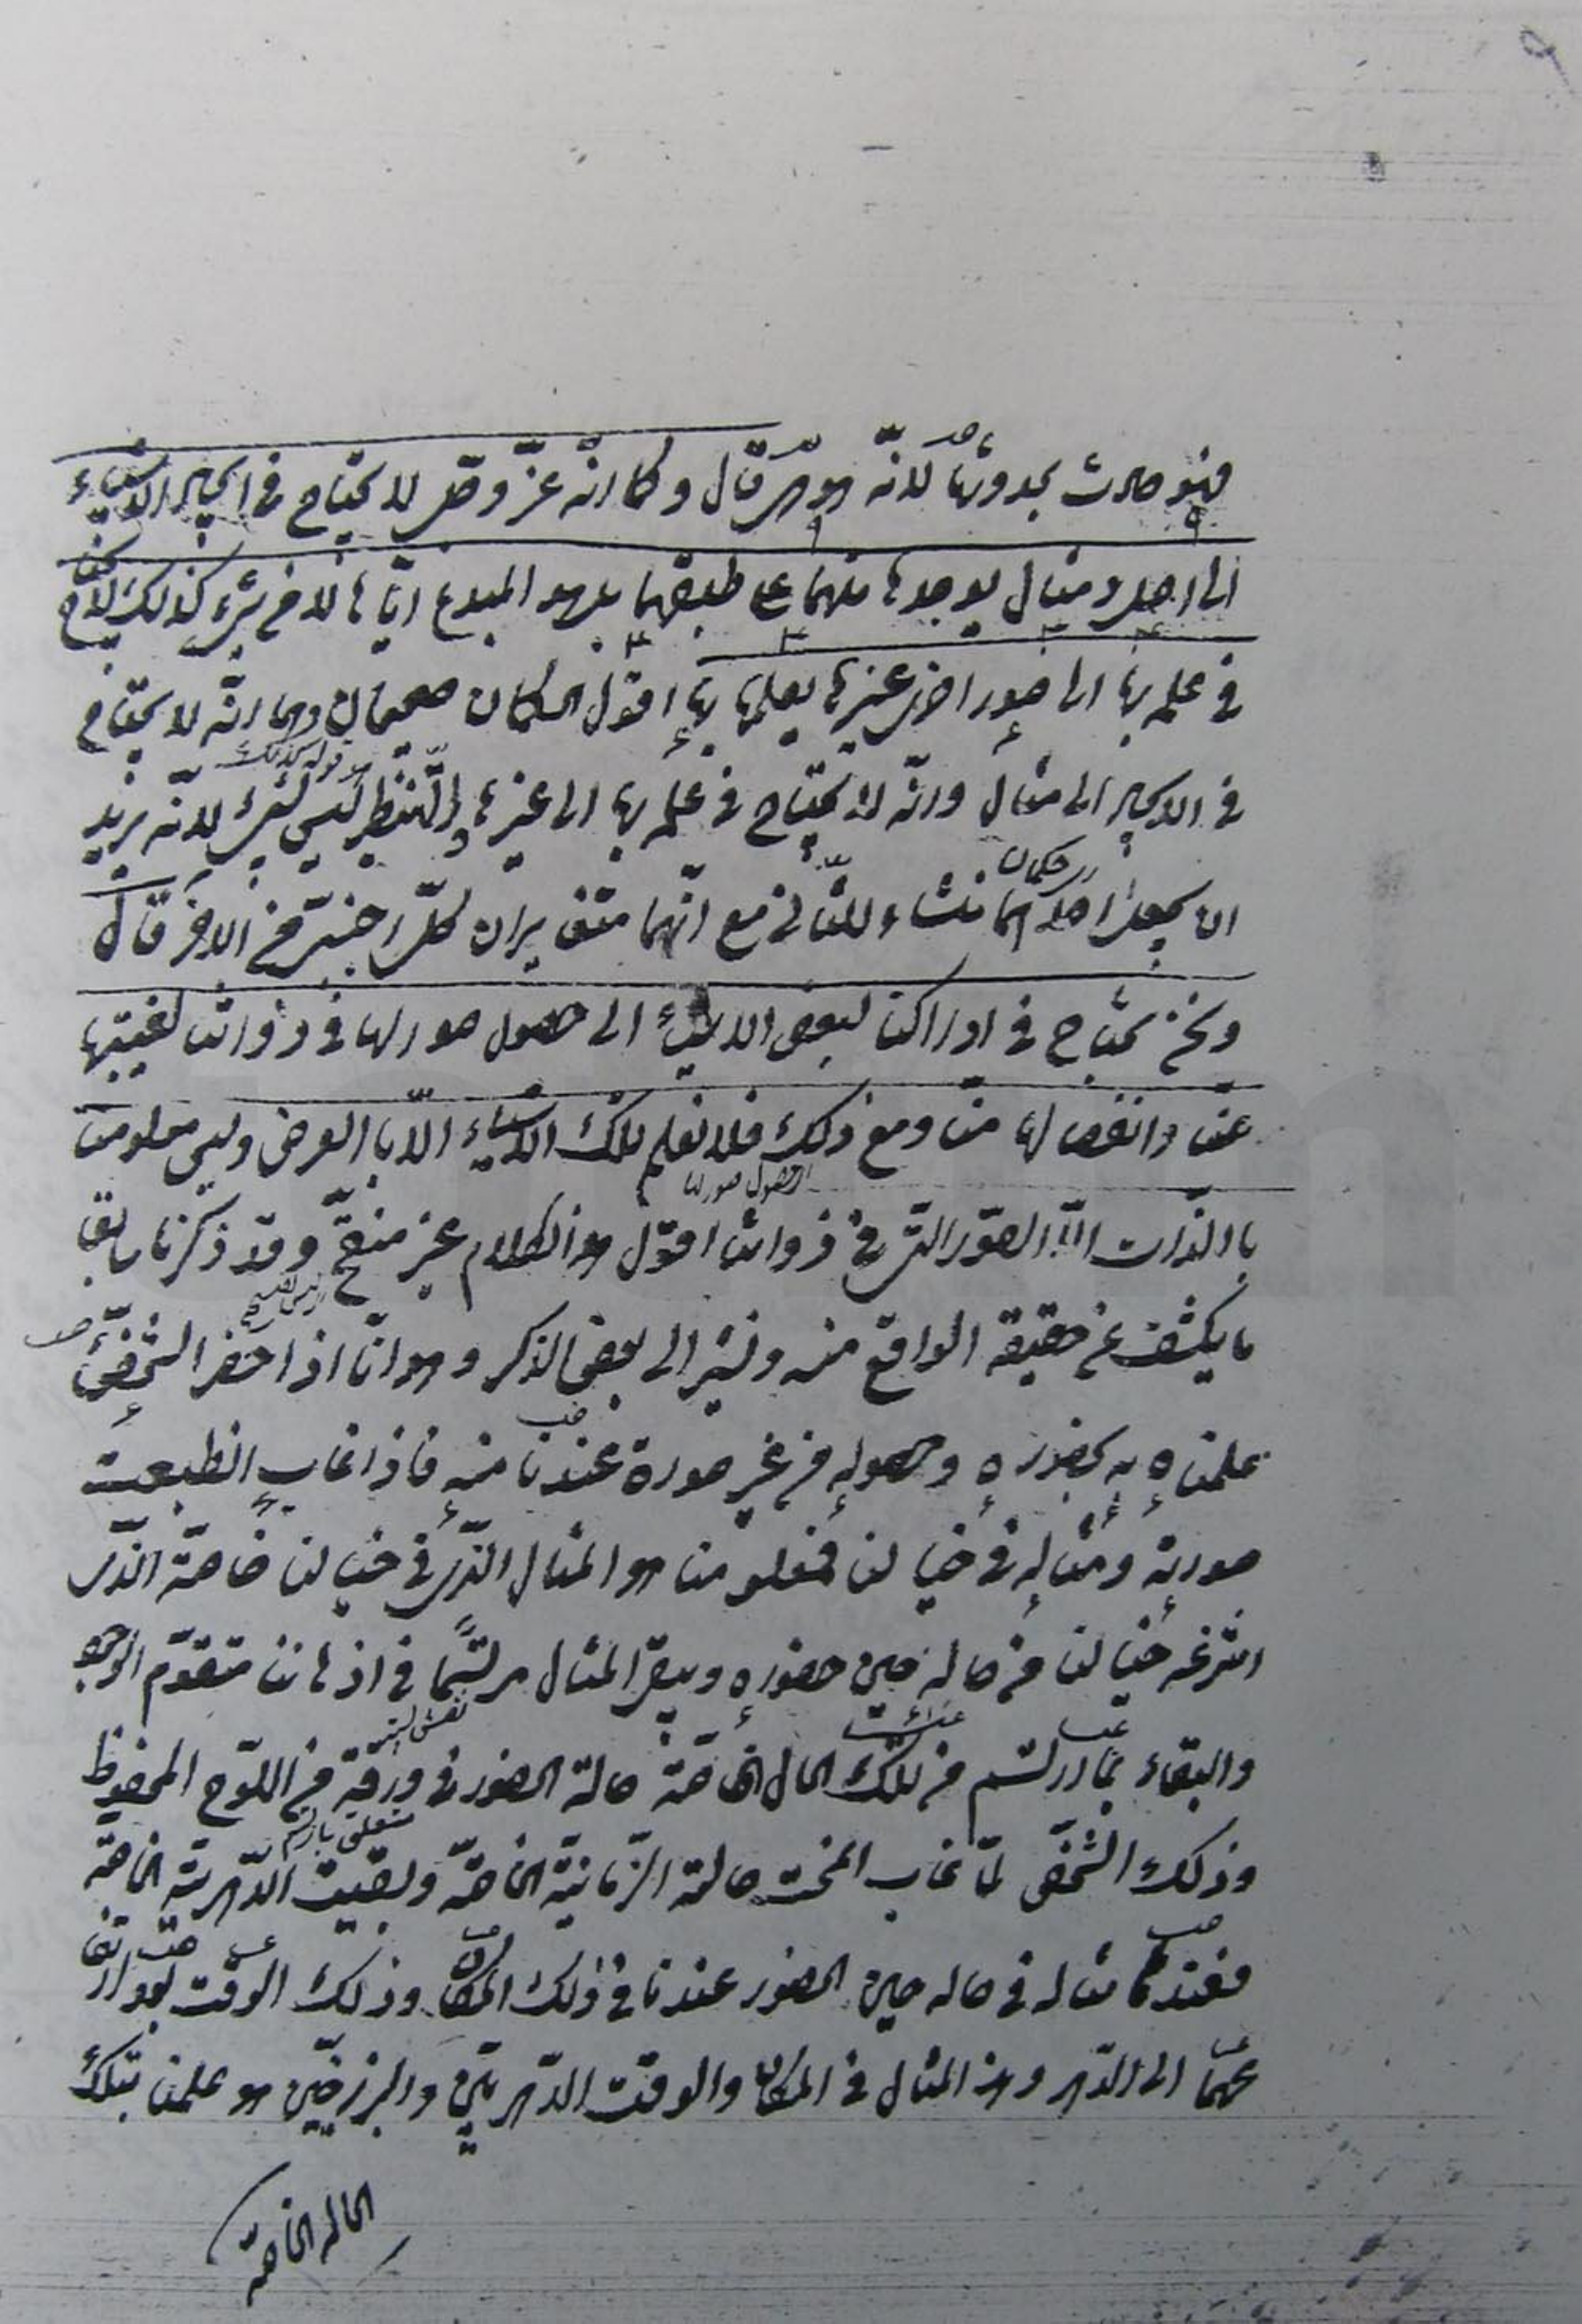 فهو حادث بحدوثها لانّه هو هى قال وكما انّه عزّ وجل لا يحتاج فى ايجاد الاشياء
الى اصل ومثال يوجدها منهما على طبقهما بل هو المبدع ايّاها لا من شىء كذلك لا يحتاج
فى علمه بها الى صور اخرى غيرها يعلمها بها اقول الحكمان صحيحان وهما انّه لا يحتاج
قوله كذلك
فى الايجاد الى مثال وانّه لا يحتاج فى علمه بها الى غيرها والتنظير ليس بشىء لانّه يريد
اى حكمان
ان يجعل احدهما منشاء للثانى مع انّهما متغايران كلّ اجنبىّ من الاخر قال
ونحن نحتاج فى ادراكنا لبعض الاشياء الى حصول صورها فى ذواتنا لغيبتها
عنّا وانفصالها منّا ومع ذلك فلا نعلم تلك الاشياء الّا بالعرض وليس معلومنا
الحصول صورها
بالذّات الّا الصّور الّتى فى ذواتنا اقول هذا الكلام غير منقّح وقد ذكرنا سابقا
ما يكشف عن حقيقة الواقع منه ونشير الى بعض الذكر وهو انّا اذا حضر الشّخص
علمناه به بحضوره وحصوله من غير صورة عندنا منه فاذا غاب انطبعت
صورته ومثاله فى خيالنا فمعلومنا هو المثال الّذى فى خيالنا خاصّة الّذى
انتزعه خيالنا من حاله حين حضوره ويبقى المثال مرتسما فى اذهاننا متقوّم الوجود
والبقاء بما ارتسم من تلك الحال الخاصّة حالة الحضور فى ورقة من اللّوح المحفوظ
متعلق بارتسم
وذلك الشّخص لمّا غاب انمحت حالته الزّمانيّة الخاصّة وبقيت الدّهريّة الخاصّة
فعندنا مثاله فى حاله حين الحضور عندنا فى ذلك المكان وذلك الوقت بعد ارتفاع
عنهما الى الدّهر وهذا المثال فى المكان والوقت الدّهريّين والبرزخيّين هو علمنا بتلك
الحالة الخاصّة